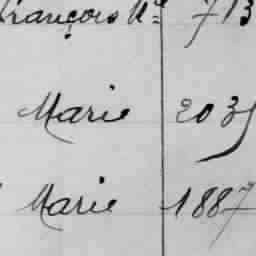 François Nel 713
Marie 2035
Marie 1887